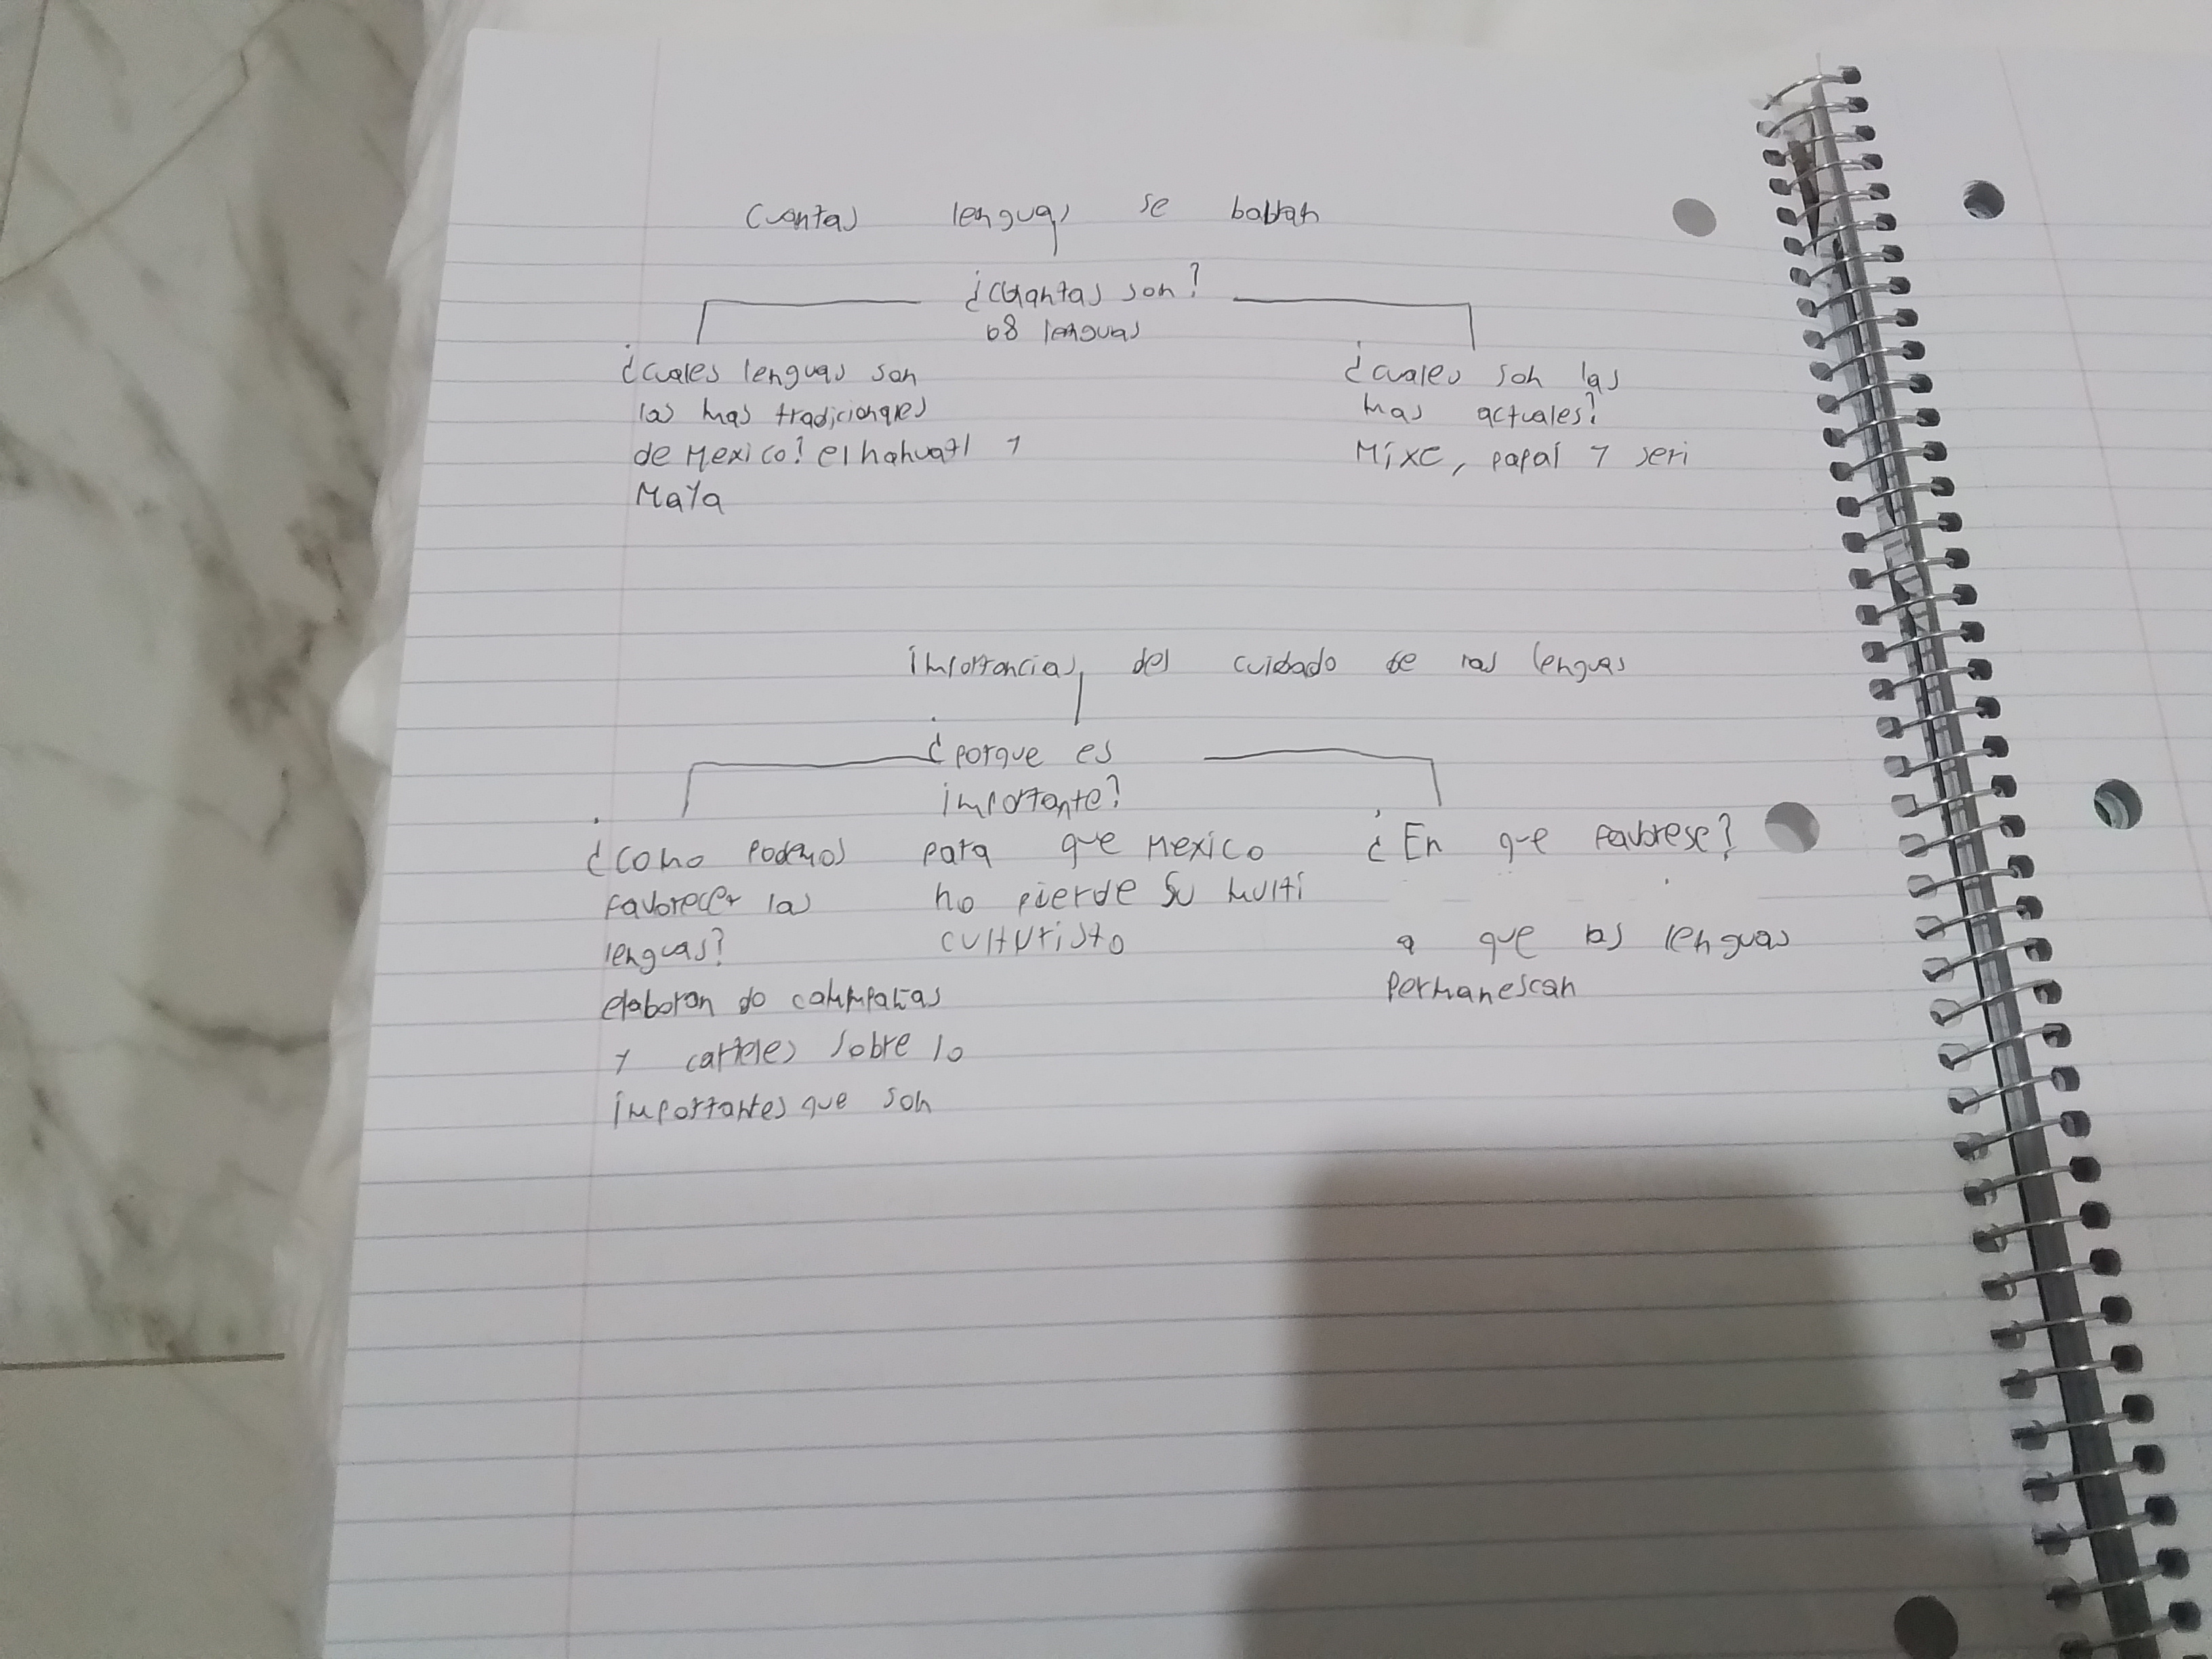 Cuantas lenguas se hablan
¿Cuantas son?
68 lenguas
¿cuales lenguas son
las mas tradicionales
de Mexico? el nahuatl y
Maya
¿cuales son las
mas actuales?
Mixe, papai y seri
importancias del cuidado de las lenguas
¿porque es
importante?
para que Mexico
no pierde su multi
culturisto
¿como podemos
favorecer las
lenguas?
elaboran do campañas
y carteles sobre lo
importantes que son
¿En que favorese?
a que las lenguas
permanescan